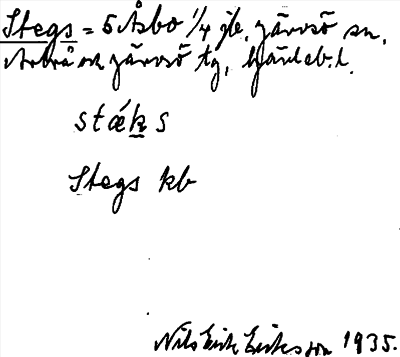 Stegs = 5 Åsbo 1/4 jb. Järvsö sn,
Arbrå och Järvsö tg, Hälsl.
stǽks
Stegs kb
Nils Erik Eriksson 1935.